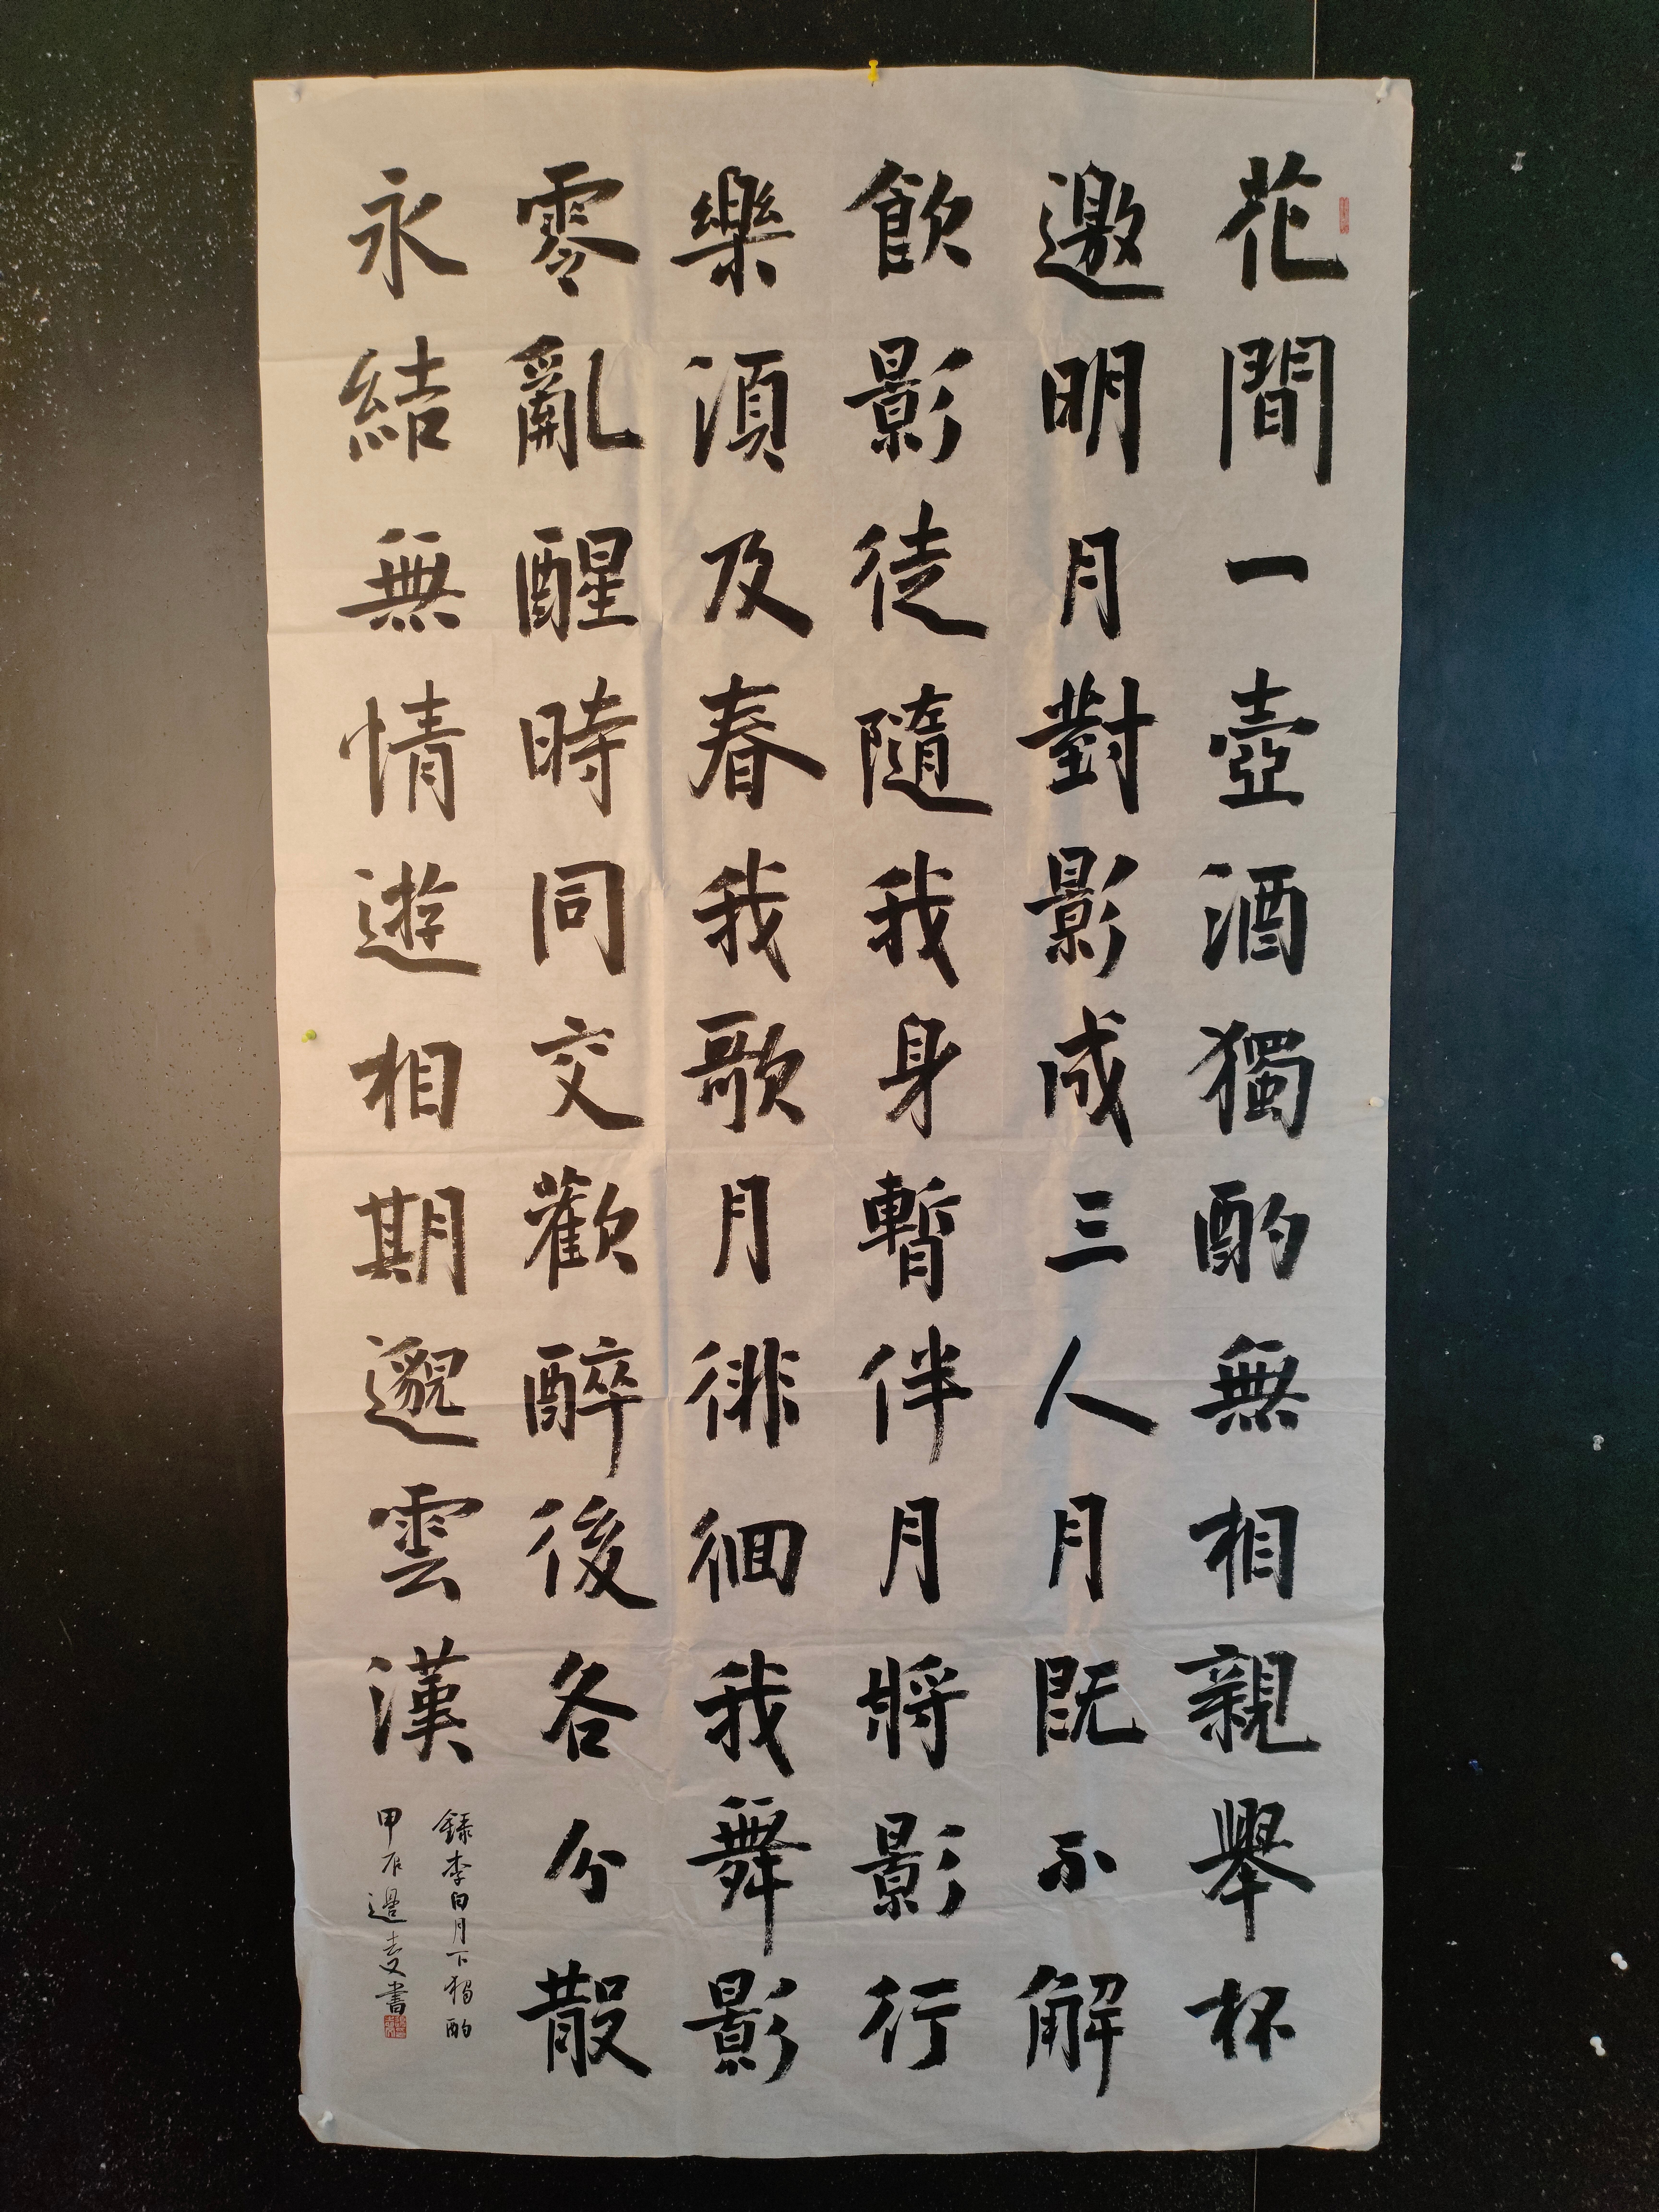 花間一壺酒獨酌無相親舉杯
邀明月對影成三人月既不解
飲影徒隨我身暫伴月將影行
樂須及春我歌月徘徊我舞影
零亂醒時同交歡醉後各分散
永結無情遊相期邈雲漢
錄李白月下獨酌
甲辰邊
書